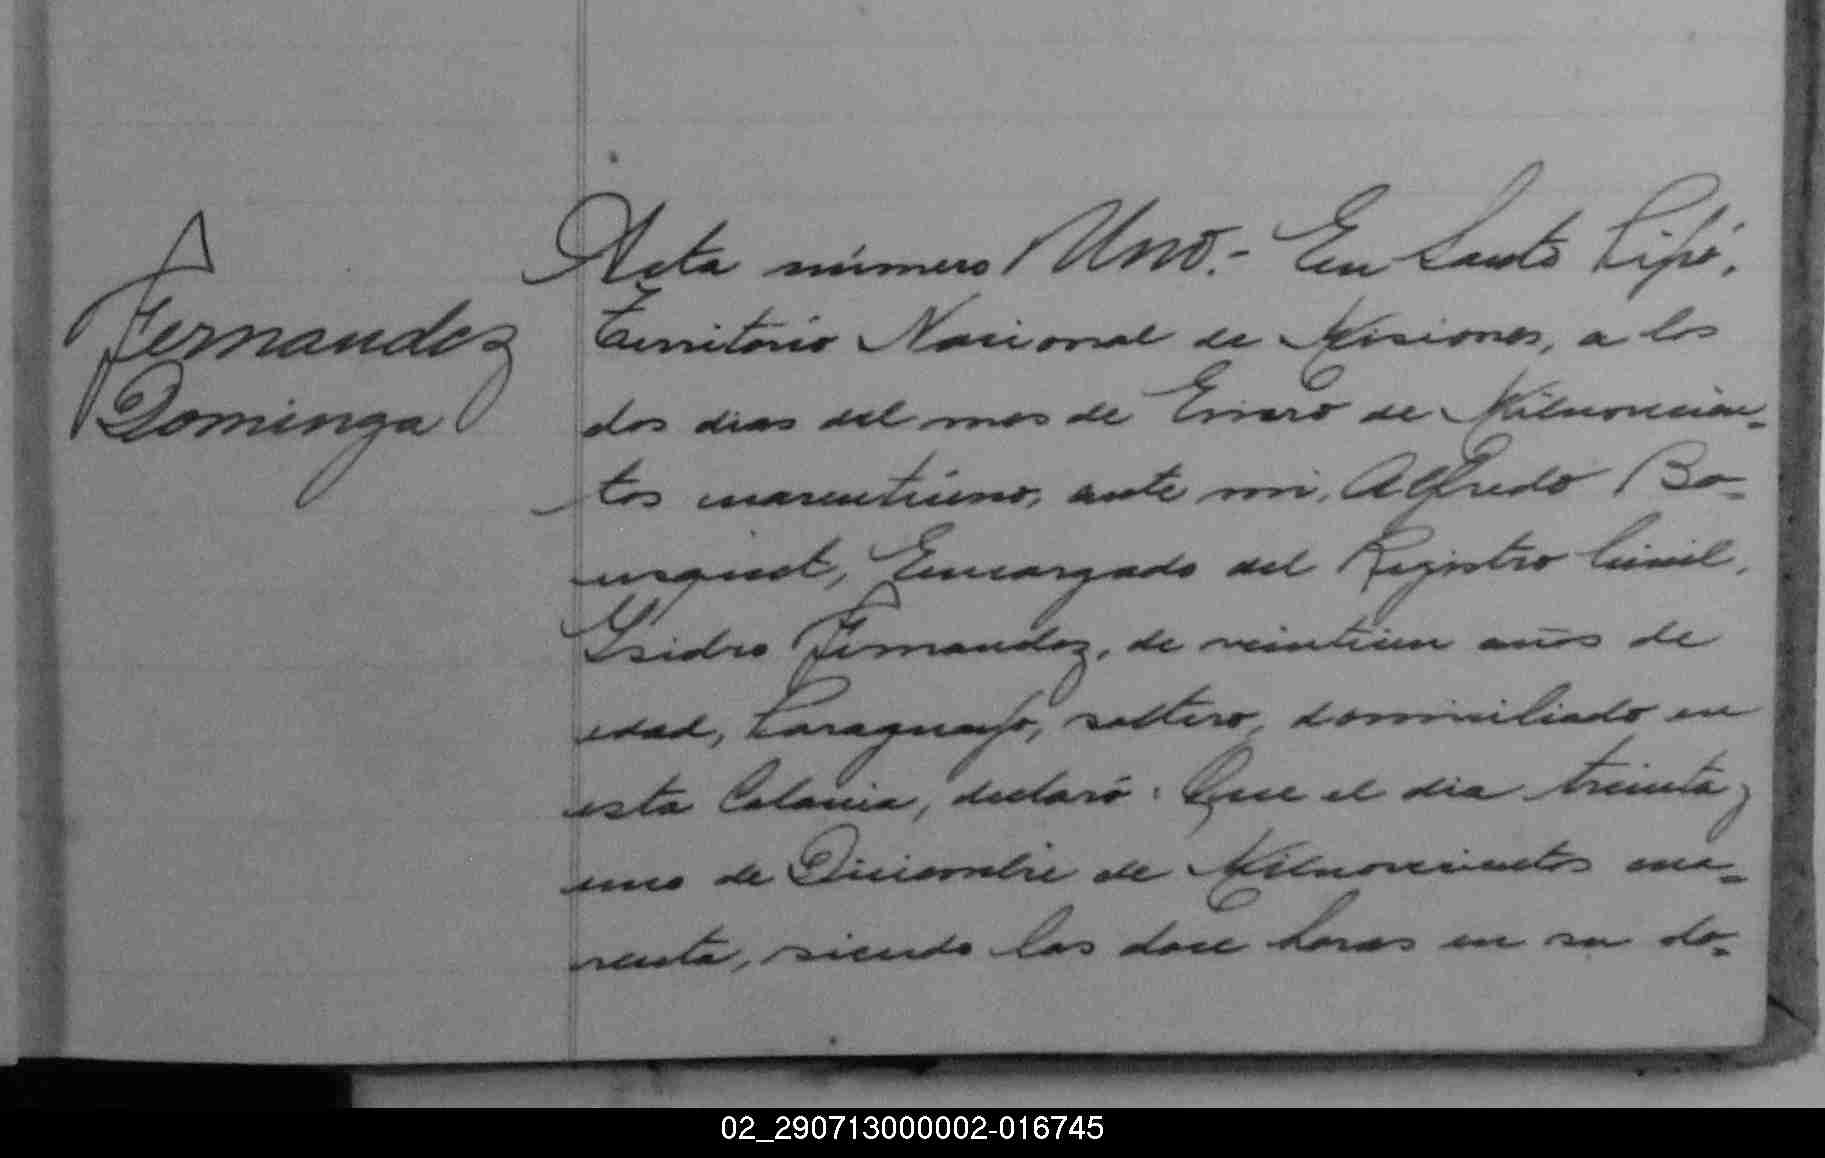 Fernandez
Dominga
Acta número Uno.- En Santo Pipó,
Territorio Nacional de Misiones, a los
dos dias del mes de Enero de Milnovecien=
tos cuarentiuno, ante mi, Alfredo Bo=
usquet, Encargado del Registro Civil,
Isidro Fernandez, de veintiun años de
edad, Paraguayo, soltero, domiciliado en
esta Colonia, declaró: Que el dia treinta y
uno de Diciembre de Milnovecientos cua=
renta, siendo las doce horas en su do=
02_290713000002-016745